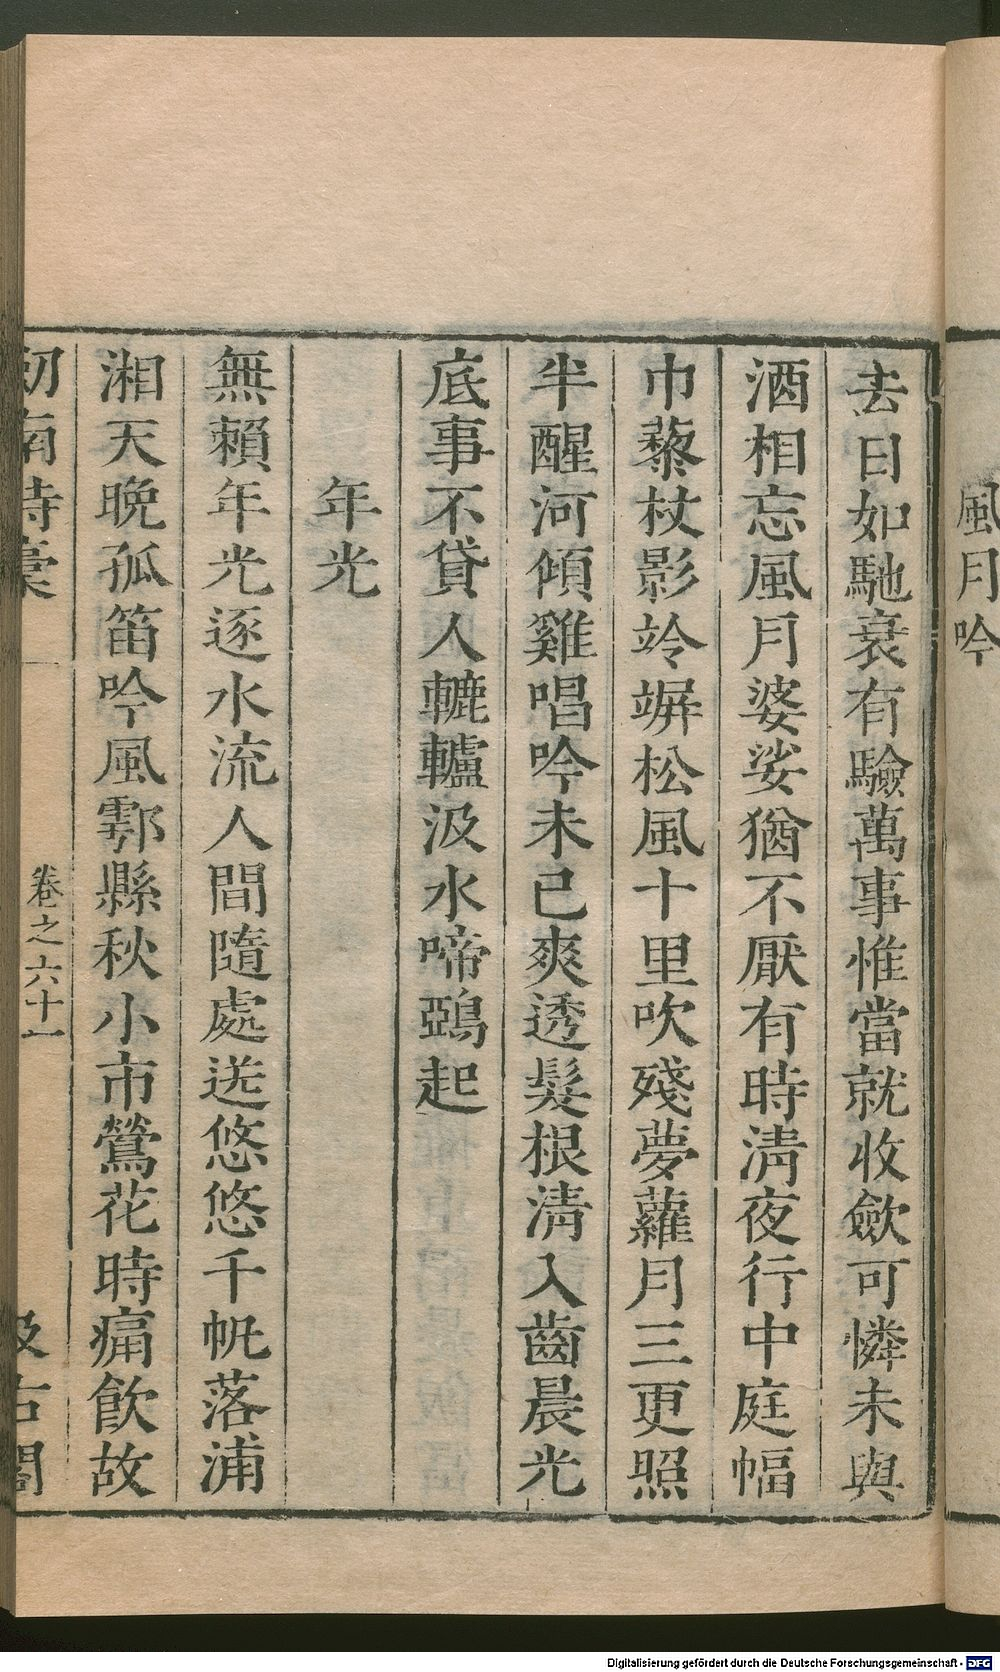 風月吟
去日如馳衰有驗萬事惟當就收歛可憐未與
酒相忘風月婆娑猶不厭有時清夜行中庭幅
巾藜杖影竛竮松風十里吹殘夢蘿月三更照
半醒河傾雞唱吟未已爽透髮根清入齒晨光
底事不貸人轆轤汲水啼鵶起
年光
無賴年光逐水流人間隨處送悠悠千帆落浦
湘天晚孤笛吟風鄠縣秋小市鶯花時痛飲故
劒南詩稾
卷之六十一
汲古閣
Digitalisierung gefördert durch die Deutsche Forschungsgemeinschaft - DFG